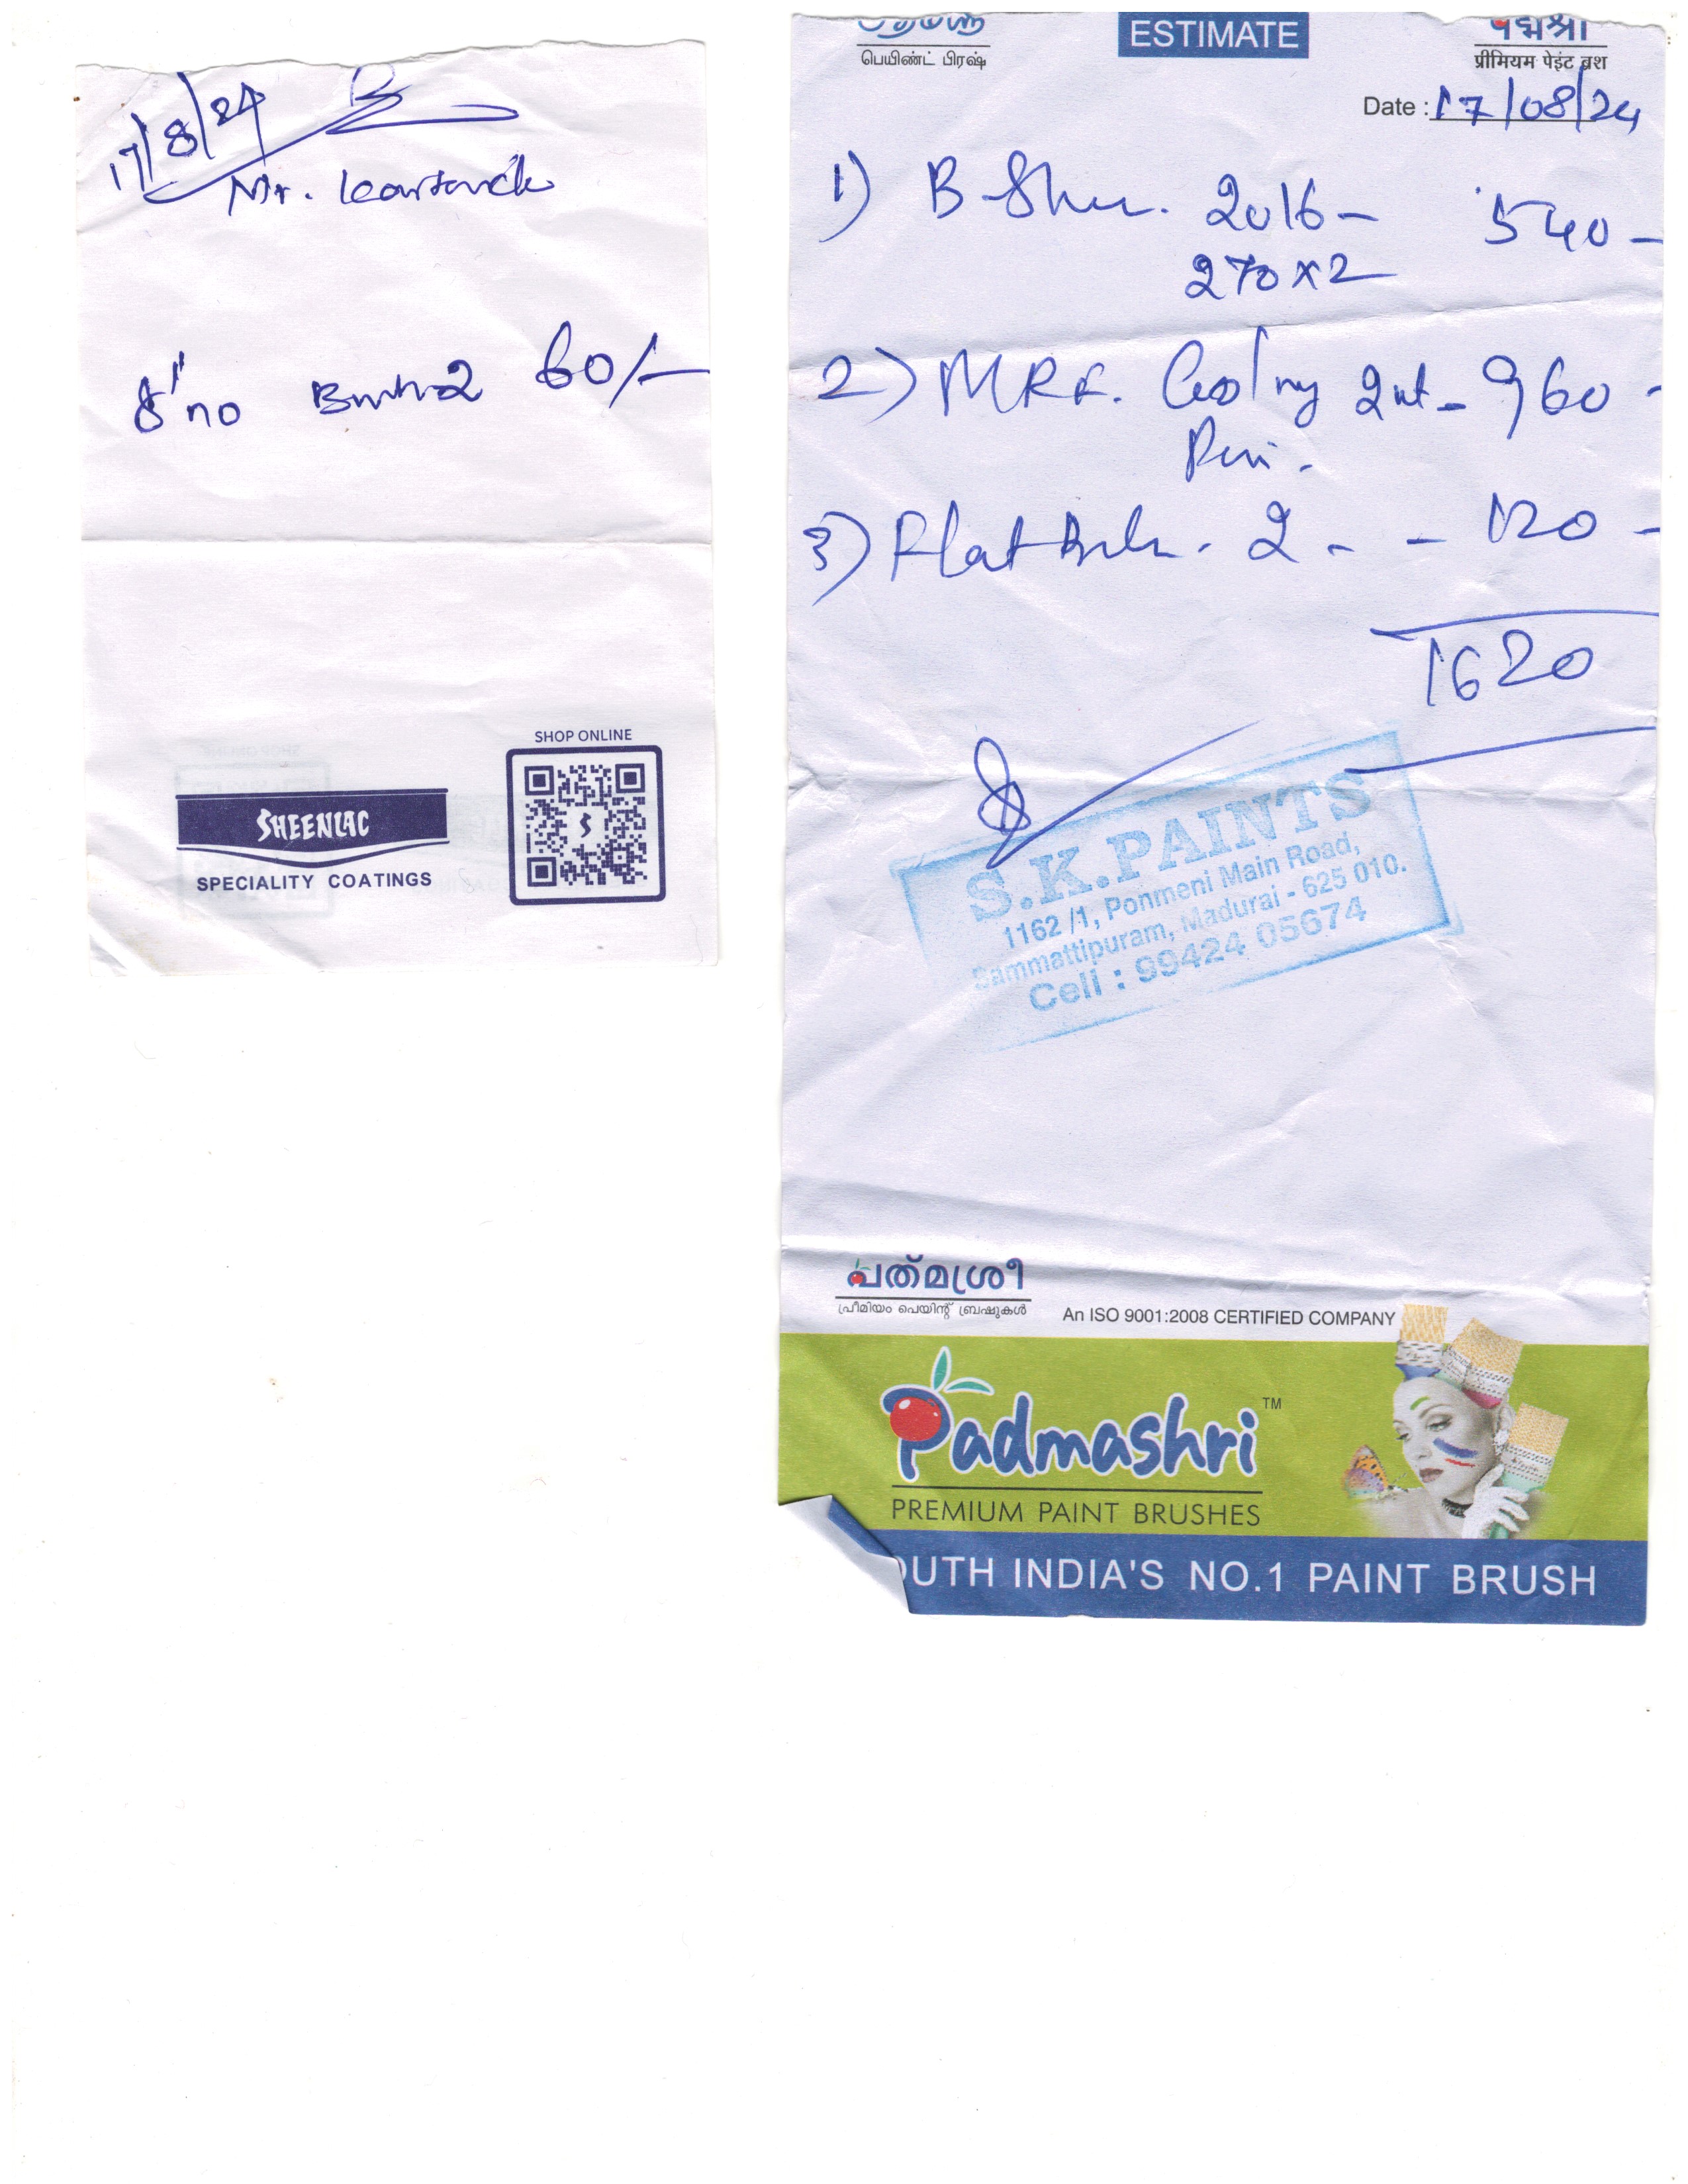 17/8/24
Mr.
no 2 60/-
SHOP ONLINE
SHEENLAC
SPECIALITY COATINGS
பெயிண்ட் பிரஷ்
ESTIMATE
पद्मश्री
प्रीमियम पेइंट ब्रश
Date : 17/08/24
1) B 2016 - 540 -
270 x 2
2) MRF. 960 -
3) Flat 2 - - 120 -
1620
S.K.PAINTS
1162 /1, Ponmeni Main Road,
Sammattipuram, Madurai - 625 010.
Cell : 99424 05674
പത്മശ്രീ
പ്രീമിയം പെയിന്റ് ബ്രഷുകൾ
An ISO 9001:2008 CERTIFIED COMPANY
Padmashri TM
PREMIUM PAINT BRUSHES
OUTH INDIA'S NO.1 PAINT BRUSH